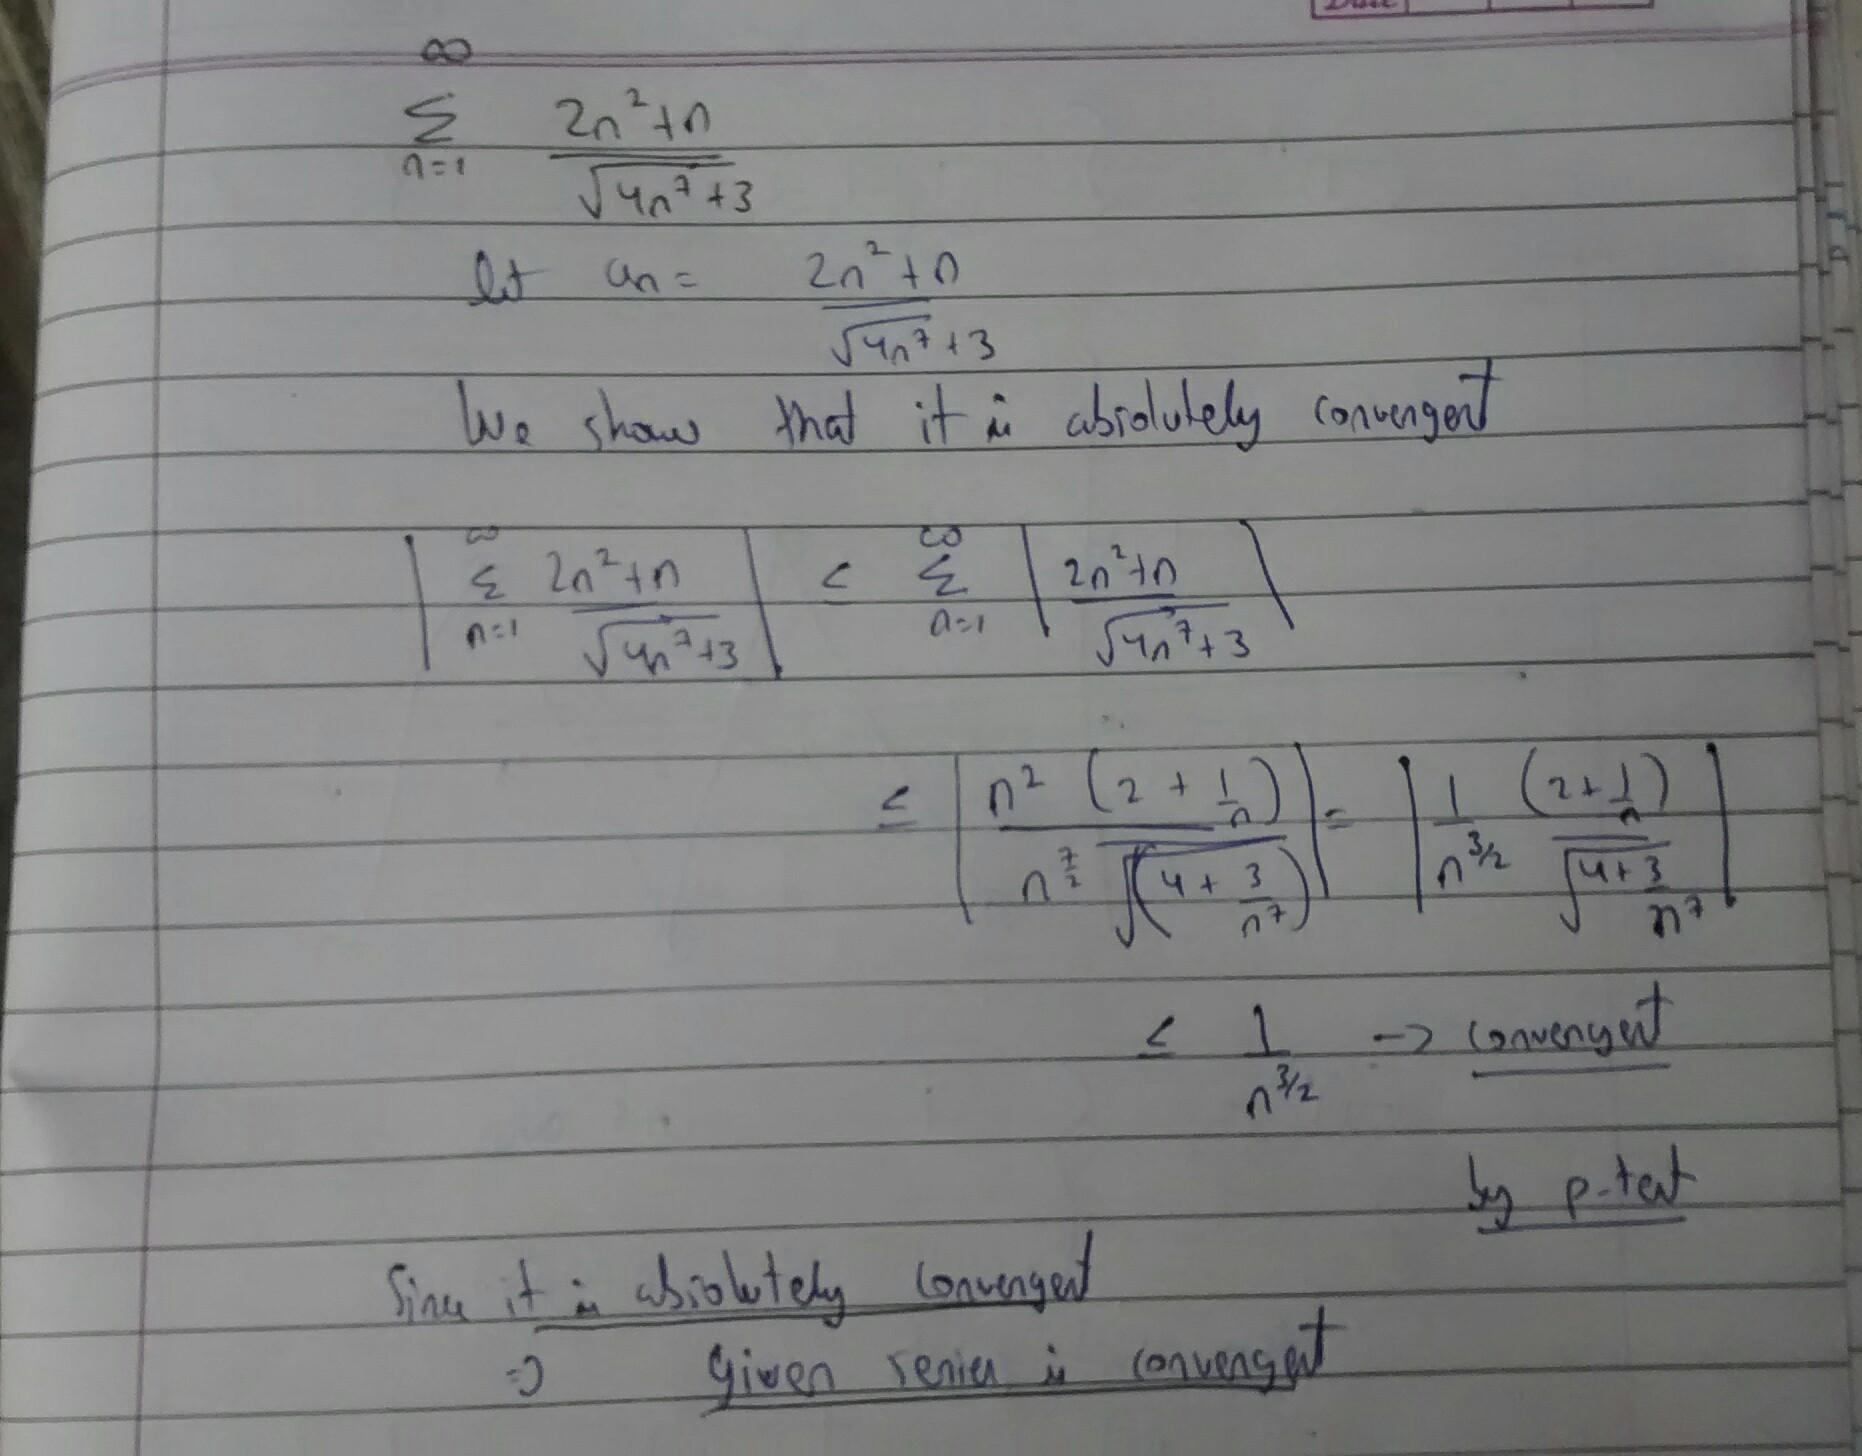 Date
∞
Σ 2n²+n
n=1 √4n⁷+3
let an = 2n²+n
√4n⁷+3
We show that it is absolutely convergent
| ∞ Σ n=1 2n²+n / √4n⁷+3 | < ∞ Σ n=1 | 2n²+n / √4n⁷+3 |
≤ | n² (2 + 1/n) / n^7/2 √(4 + 3/n⁷) | = | 1/n^3/2 (2+1/n) / √4+3/n⁷ |
≤ 1/n^3/2 → convengent
by p-test
Since it is absolutely convengent
⇒ Given series is convengent